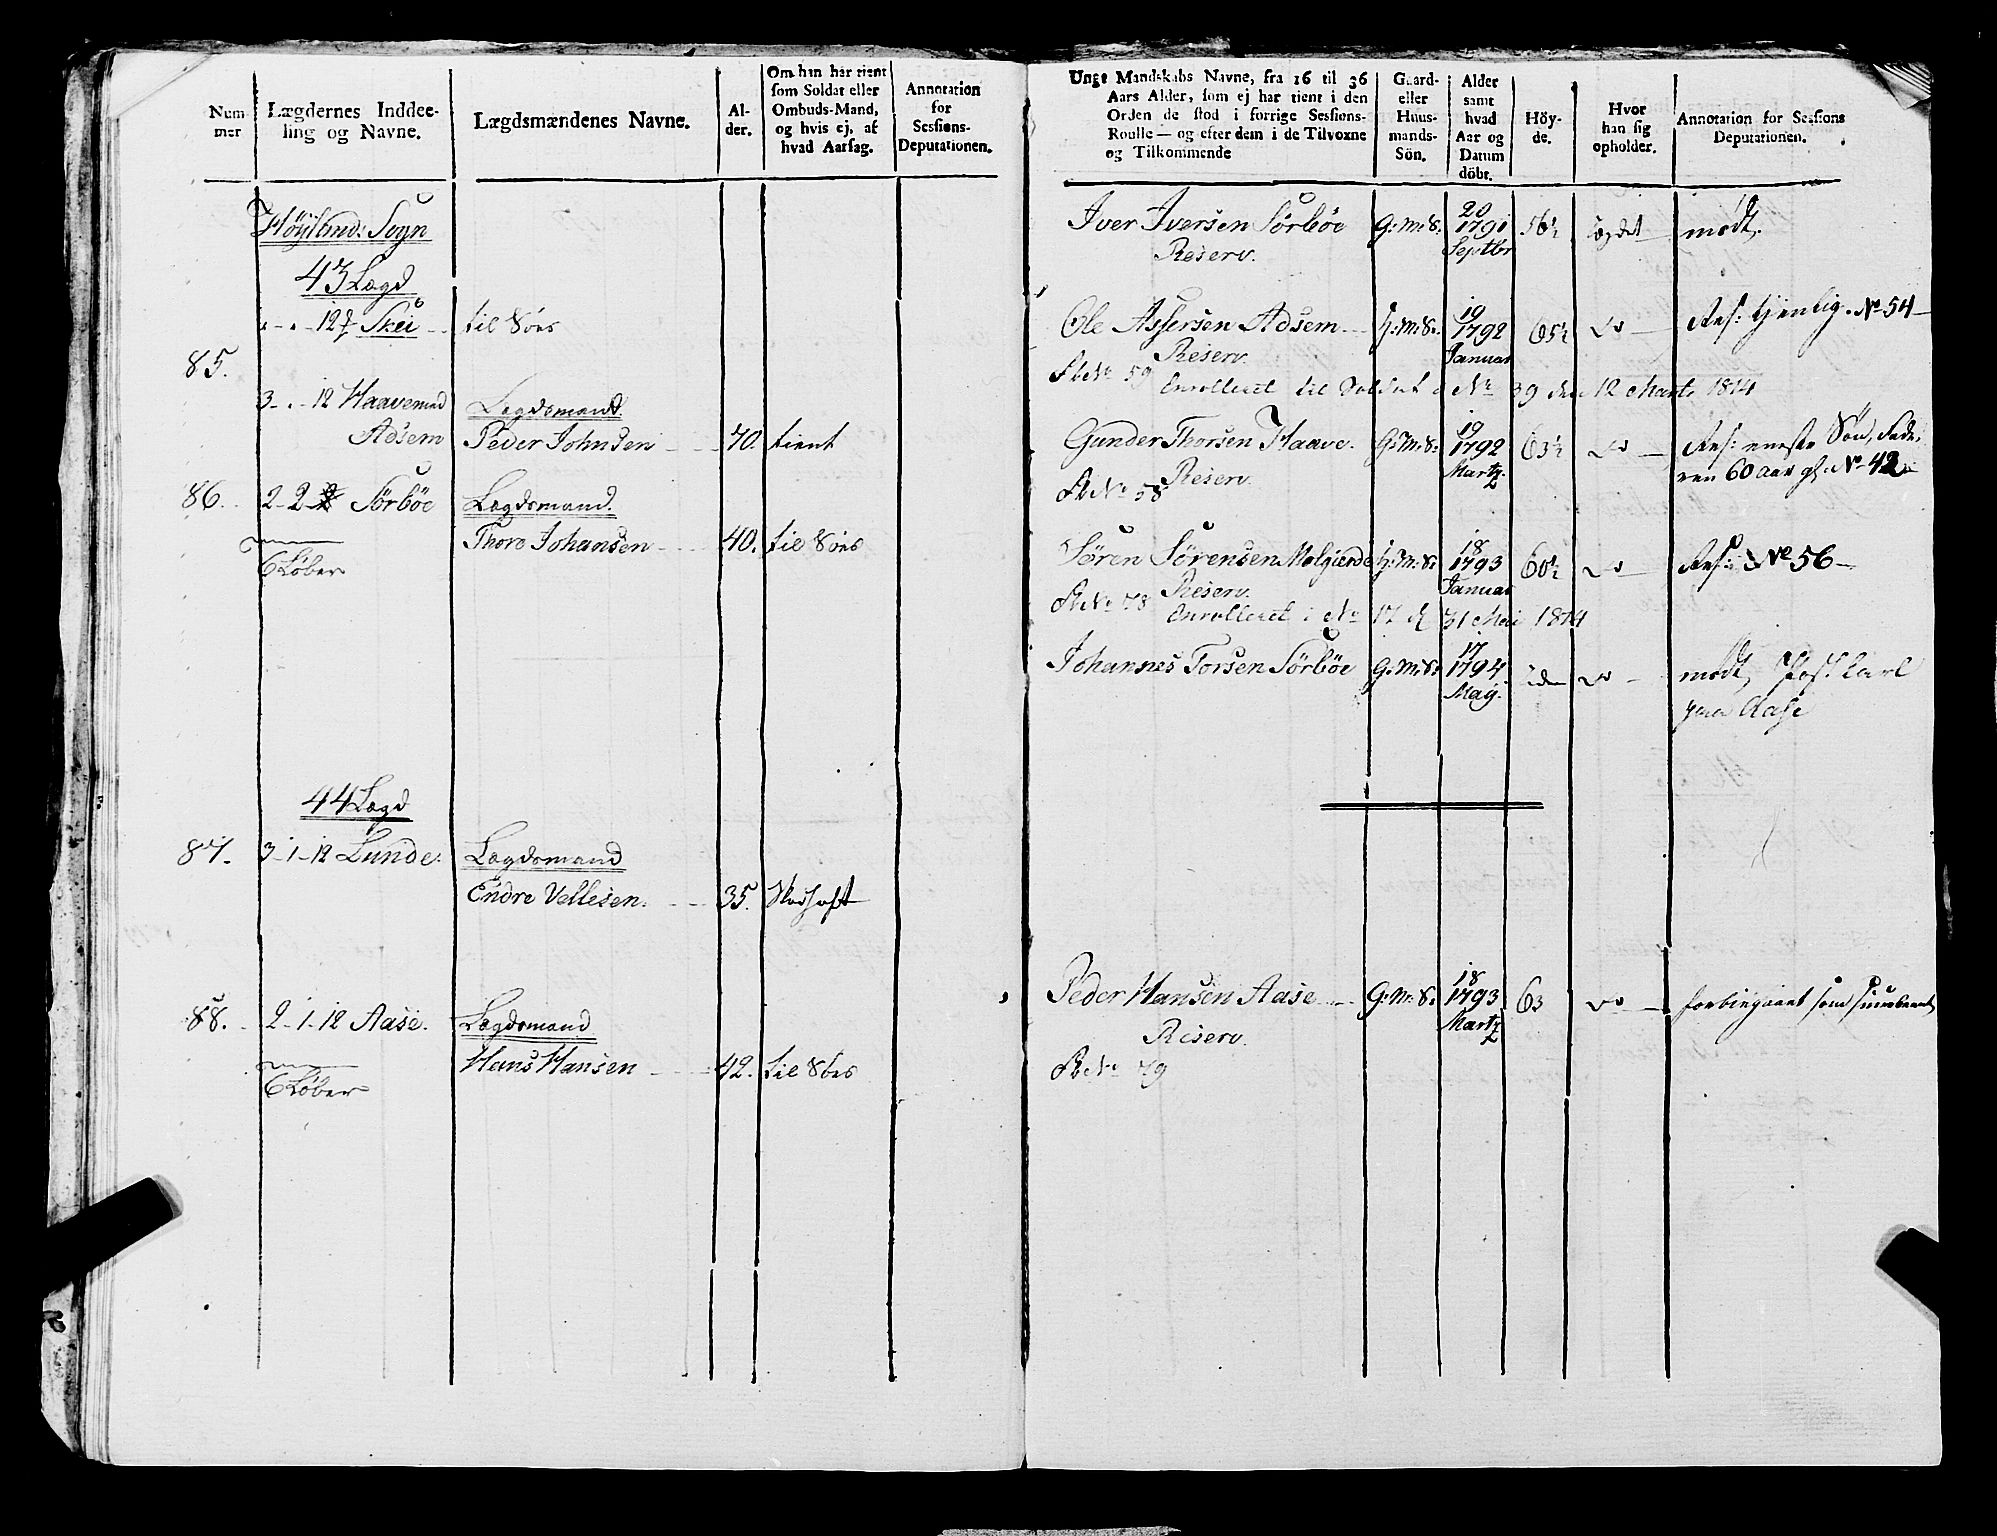 Num-
mer
Lægdernes Inddee-
ling og Navne.
Lægdsmændenes Navne.
Al-
der.
Om han har tient
som Soldat eller
Ombuds-Mand,
og hvis ej, af
hvad Aarsag.
Annotation
for
Sessions-
Deputationen.
Höyland: Sogn
43 Lægd
Skei til Söes
85.
3 - " - 12 Haavemed Lægdsmand.
Adsem Peder Johnsen 70. tient
86. 2-2 Sörböe Lægdsmand.
6 Löber Thore Johansen 40. til Söes
44 Lægd
87. 3-1-12 Lunde. Lægdsmand
Endre Vellesen. 35.
88. 2-1-12 Aase. Lægdsmand
6 Löber Hans Hansen 42. til Söes
Unge Mandskabs Navne, fra 16 til 36
Aars Alder, som ej har tient i den
Orden de stod i forrige Sessions-
Roulle — og efter dem i de Tilvoxne
og Tilkommende
Gaard-
eller
Huus-
mands-
Sön.
Alder
samt
hvad
Aar og
Datum
döbt.
Höy-
de.
Hvor
han sig
opholder.
Annotation for Sessions
Deputationen.
20
Iver Iversen Sörböe G: M: S: 1791 56½ Lægdet mödt.
Reserv. Septbr
19
Ole Assersen Adsem H: M: S: 1792 65½ do Res: tjenlig. No 54
Reserv. Januar
No 59
Enrolleret til Soldat No 39 den 12 Marts 1814
19
Gunder Thorsen Haave. G: M: S: 1792 63½ do Res: eneste Sön, Fade-
Reserv. Martz ren 60 aar gl. No 42
No 58
18
Sören Sörensen Molgierde H: M: S: 1793 60½ do Res: No 56
Reserv. Januar
No 78
Enrolleret i No 17 d 31 Mai 1814
17
Johannes Torsen Sörböe G: M: S: 1794 do mödt,
May. paa Aase
18
Peder Hansen Aase G: M: S: 1793 63 do forbigaaet som
Reserv. Martz
No 79